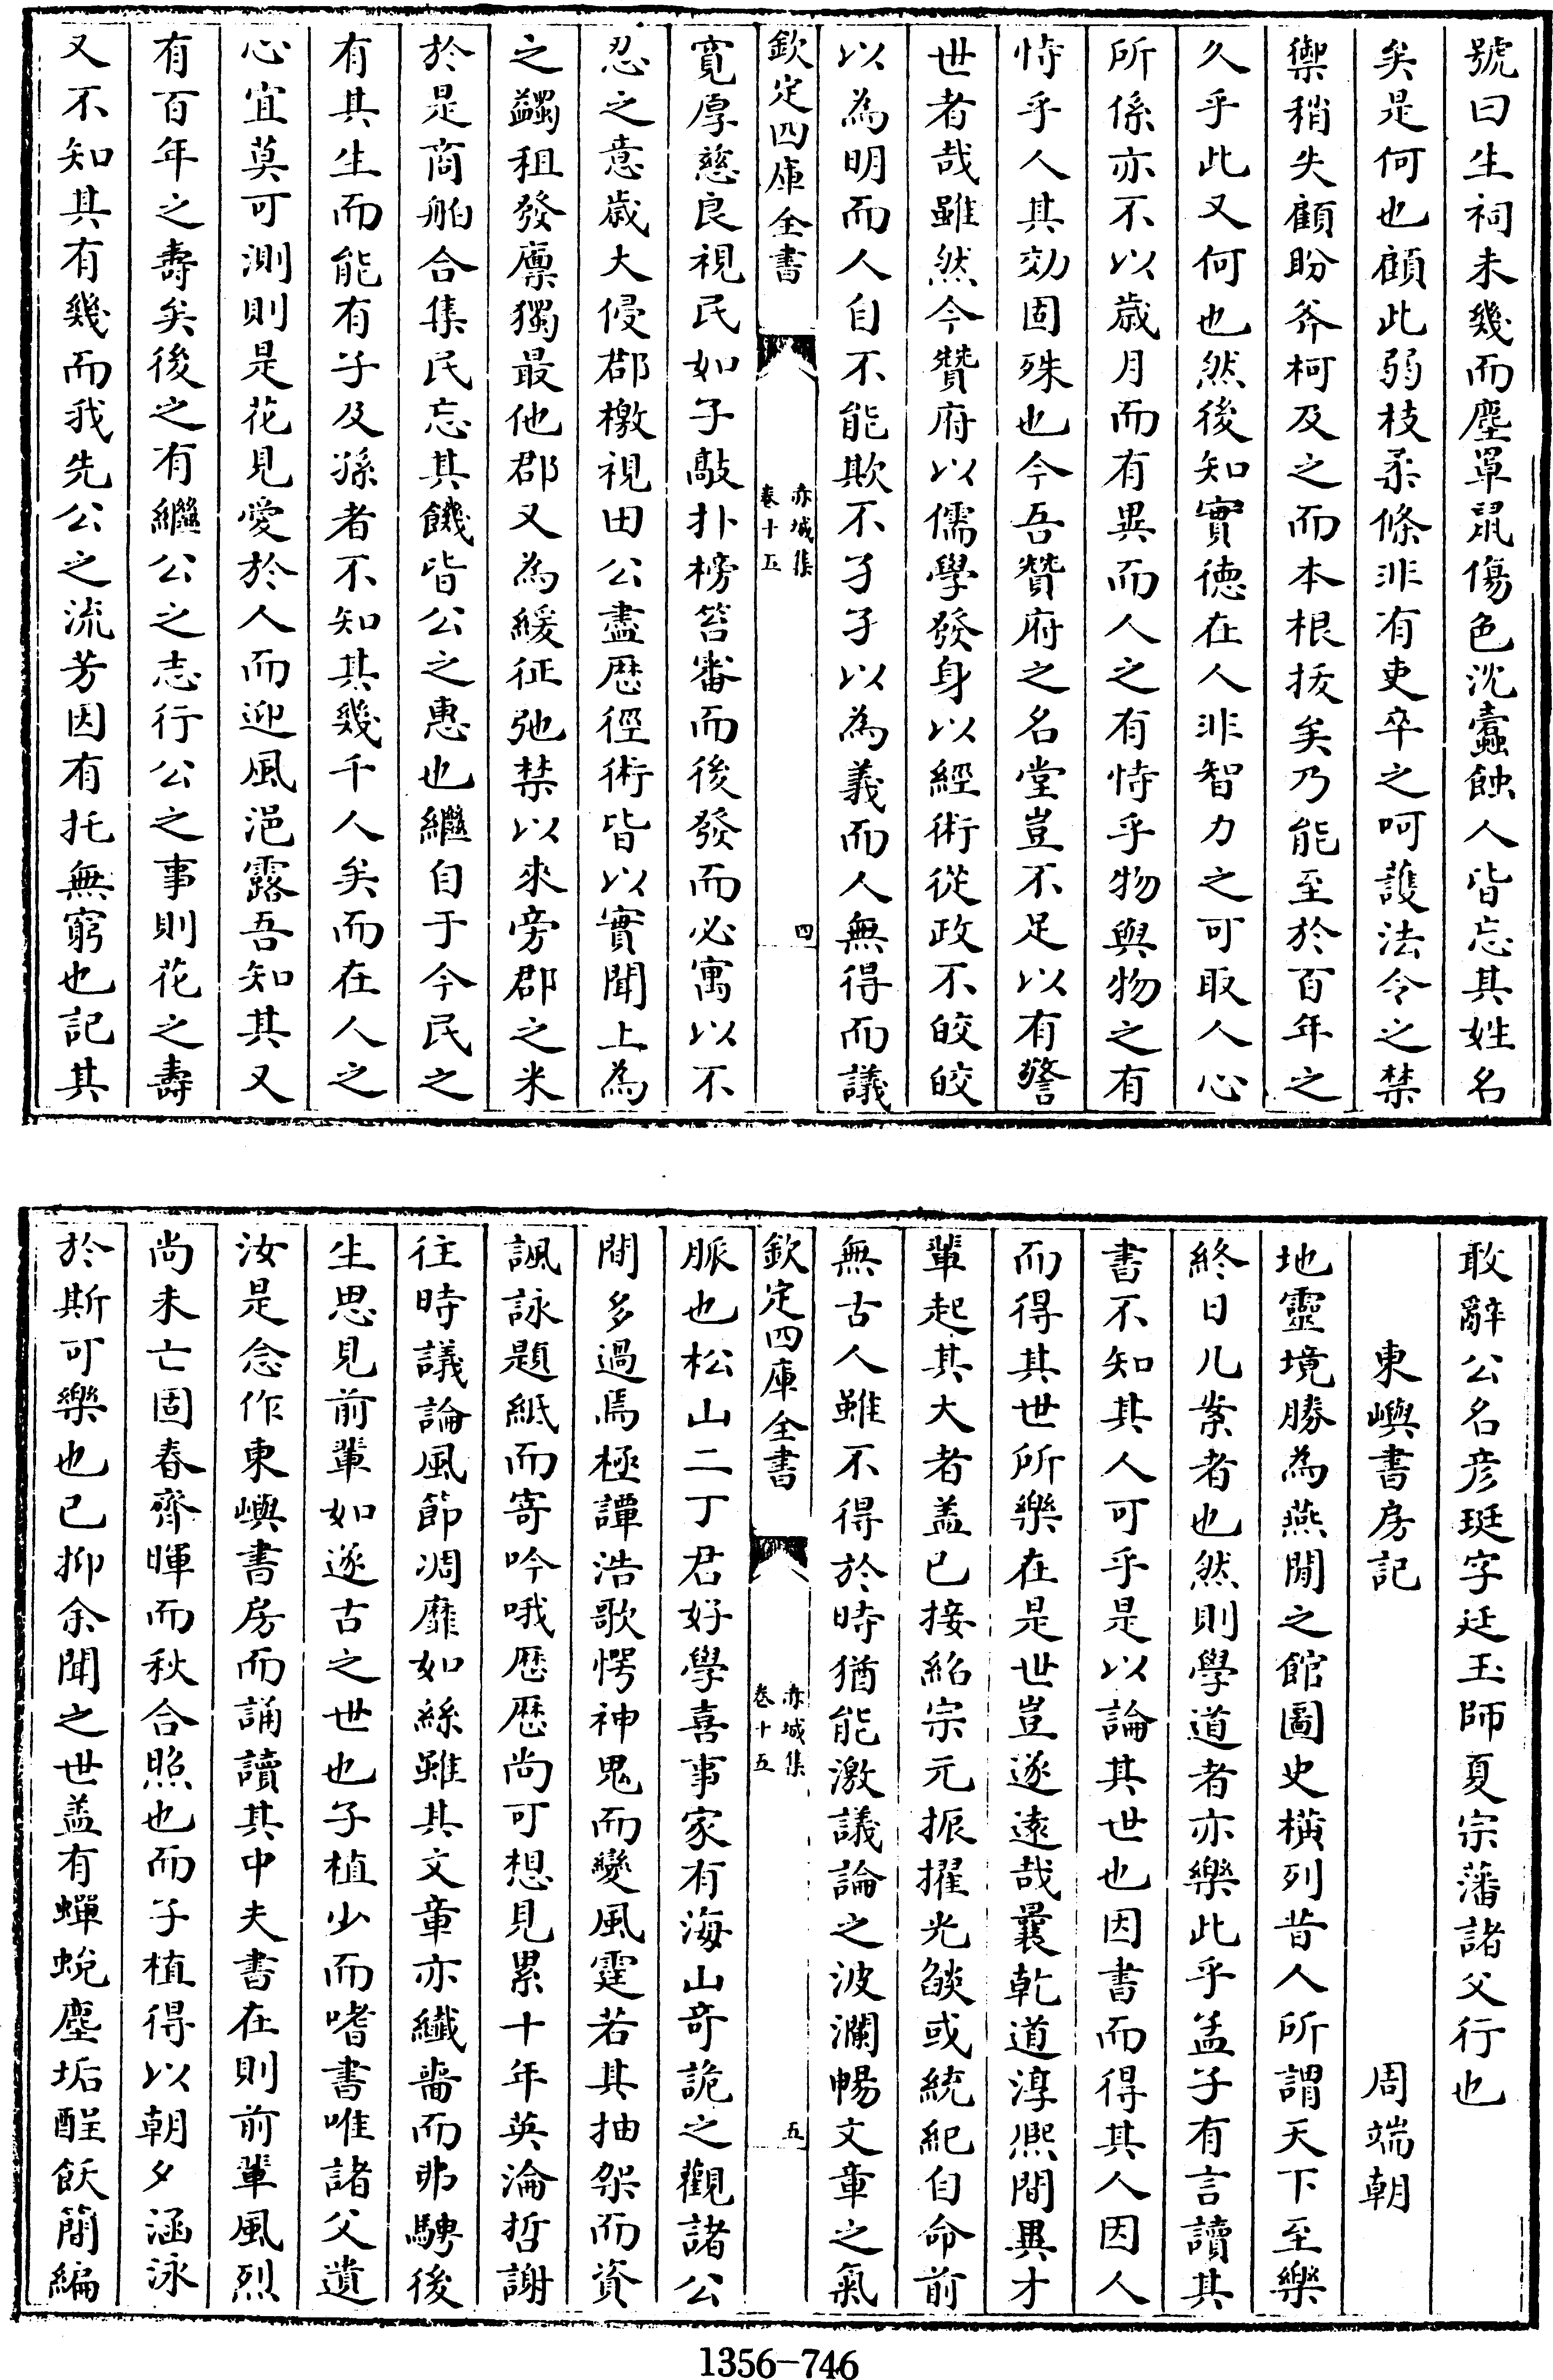 號曰生祠未幾而塵罩鼠傷色沈蠧蝕人皆忘其姓名
矣是何也顧此弱枝柔條非有吏卒之呵護法令之禁
禦稍失顧盼斧柯及之而本根拔矣乃能至於百年之
久乎此又何也然後知實德在人非智力之可取人心
所係亦不以歲月而有異而人之有恃乎物與物之有
恃乎人其効固殊也今吾贊府之名堂豈不足以有警
世者哉雖然今贊府以儒學發身以經術從政不皎皎
以為明而人自不能欺不孑孑以為義而人無得而議
欽定四庫全書
赤城集
卷十五
四
寛厚慈良視民如子敲扑榜笞審而後發而必寓以不
忍之意歲大侵郡檄視田公盡歴徑術皆以實聞上為
之蠲租發廪獨最他郡又為緩征弛禁以來旁郡之米
於是商舶合集民忘其饑皆公之惠也繼自于今民之
有其生而能有子及孫者不知其幾千人矣而在人之
心宜莫可測則是花見愛於人而迎風浥露吾知其又
有百年之壽矣後之有繼公之志行公之事則花之壽
又不知其有幾而我先公之流芳因有托無窮也記其
敢辭公名彦珽字廷玉師夏宗藩諸父行也
東嶼書房記
周端朝
地靈境勝為燕閒之館圖史橫列昔人所謂天下至樂
終日几案者也然則學道者亦樂此乎孟子有言讀其
書不知其人可乎是以論其世也因書而得其人因人
而得其世所樂在是世豈遂遠哉曩乾道淳熙間異才
輩起其大者盖已接紹宗元振擢光燄或統紀自命前
無古人雖不得於時猶能激議論之波瀾暢文章之氣
欽定四庫全書
赤城集
卷十五
五
脈也松山二丁君好學喜事家有海山奇詭之觀諸公
間多過焉極譚浩歌愕神鬼而變風霆若其抽架而資
諷詠題紙而寄吟哦歴歴尚可想見累十年英淪哲謝
往時議論風節凋靡如絲雖其文章亦纎嗇而弗騁後
生思見前輩如遂古之世也子植少而嗜書唯諸父遺
汝是念作東嶼書房而誦讀其中夫書在則前輩風烈
尚未亡固春齊暉而秋合照也而子植得以朝夕涵泳
於斯可樂也已抑余聞之世盖有蟬蛻塵垢酲飫簡編
1356-746